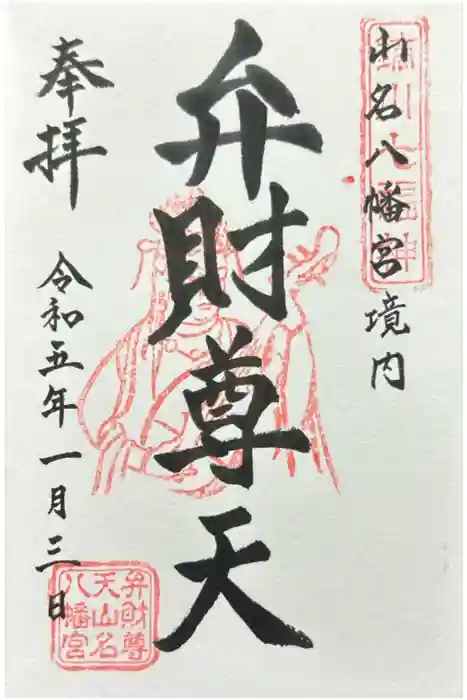 山名八幡宮境内
弁財尊天
奉拝
令和五年一月三日
弁財尊
天山名
八幡宮